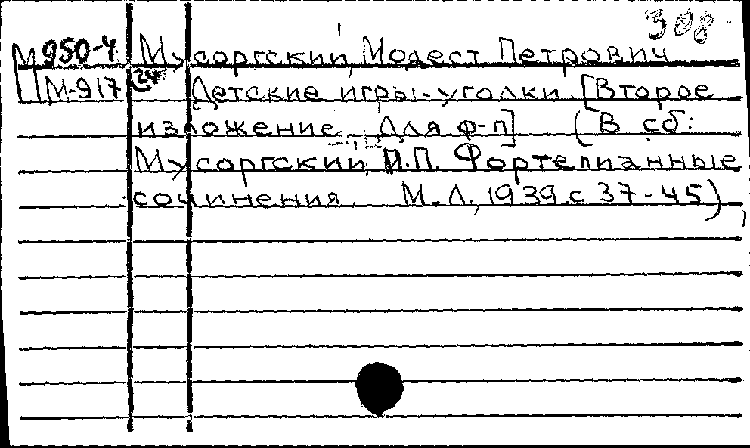 308
М950-4 Мусоргский, Модест Петрович
Ц М-917 24 Детские игры-уголки [Второе
изложение. Для ф-п] (В сб:
Мусоргский, М.П. Фортепианные
сочинения. М.Л., 1939. с 37-45)